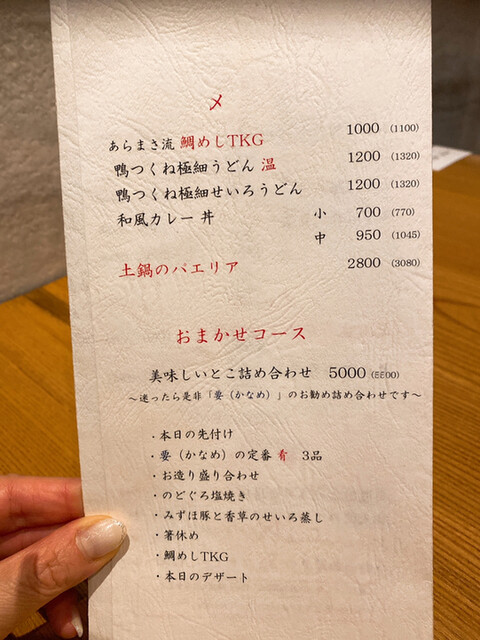 〆
あらまさ流 鯛めしTKG 1000 (1100)
鴨つくね極細うどん 温 1200 (1320)
鴨つくね極細せいろうどん 1200 (1320)
和風カレー丼 小 700 (770)
中 950 (1045)
土鍋のパエリア 2800 (3080)
おまかせコース
美味しいとこ詰め合わせ 5000 (5500)
〜迷ったら是非「要（かなめ）」のお勧め詰め合わせです〜
・本日の先付け
・要（かなめ）の定番 肴 3品
・お造り盛り合わせ
・のどぐろ塩焼き
・みずほ豚と香草のせいろ蒸し
・箸休め
・鯛めしTKG
・本日のデザート